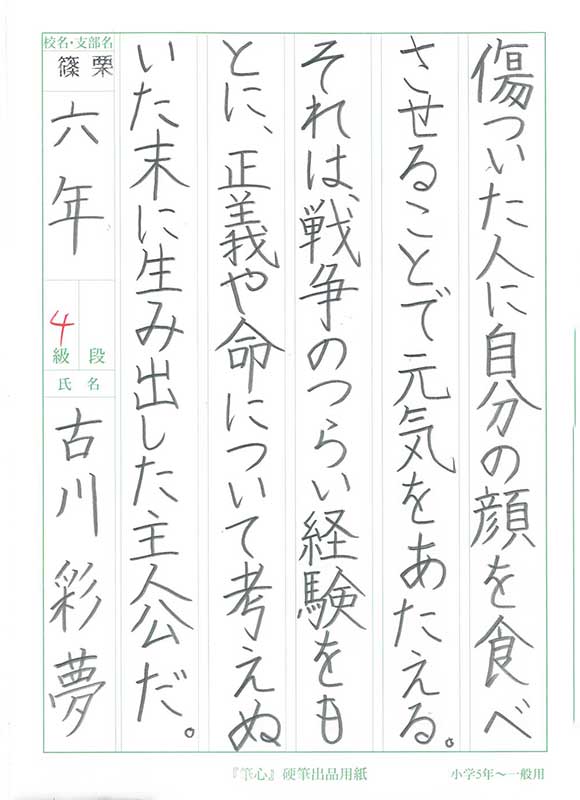 傷ついた人に自分の顔を食べ
させることで元気をあたえる。
それは、戦争のつらい経験をも
とに、正義や命について考えぬ
いた末に生み出した主人公だ。
校名・支部名
篠栗
六年
4
級 段
氏名
古川彩夢
『筆心』硬筆出品用紙
小学5年〜一般用